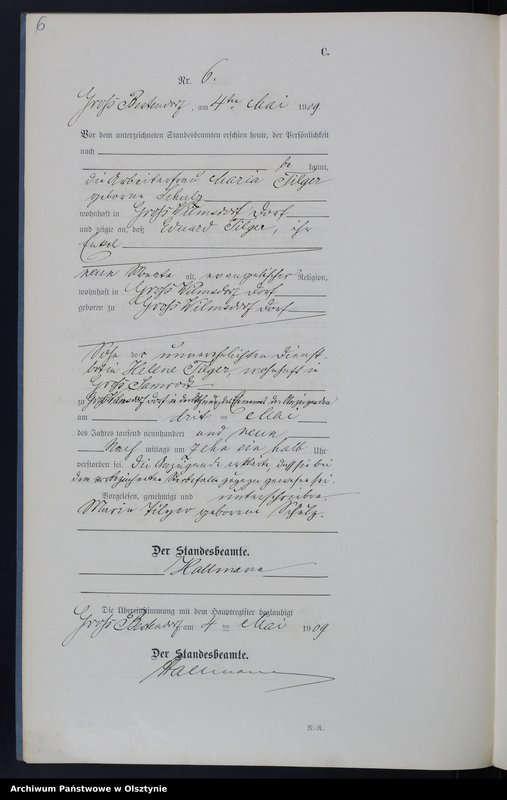 6
C.
Nr. 6.
Groß Bestendorf, am 4ten Mai 1909
Vor dem unterzeichneten Standesbeamten erschien heute, der Persönlichkeit
nach
be kannt,
die Arbeiterfrau Maria Tilger
geborene Schulz
wohnhaft in Groß Wilmsdorf Dorf
und zeigte an, daß Eduard Tilger, ihr
Enkel
neun Monate alt, evangelischer Religion,
wohnhaft in Groß Wilmsdorf Dorf
geboren zu Groß Wilmsdorf Dorf
Sohn der unverehelichten Dienst-
botin Helene Tilger, wohnhaft in
Groß Samrodt
zu Groß Wilmsdorf Dorf in der Wohnung des Ehemannes der Anzeigenden
am drit ten Mai
des Jahres tausend neunhundert und neun
Nach mittags um zehn ein halb Uhr
verstorben sei. Die Anzeigende erklärte, daß sie bei
dem vorbezeichneten Sterbefalle zugegen gewesen sei.
Vorgelesen, genehmigt und unterschrieben.
Maria Tilger geborene Schulz.
Der Standesbeamte.
Hallmann
Die Übereinstimmung mit dem Hauptregister beglaubigt
Groß Bestendorf am 4 ten Mai 1909
Der Standesbeamte.
Hallmann
N.-R.
Archiwum Państwowe w Olsztynie